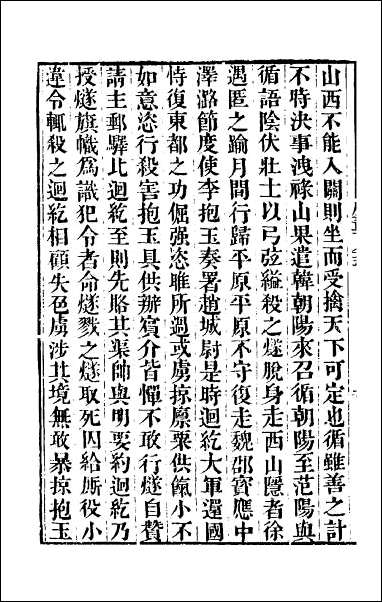 山西不能入關則坐而受擒天下可定也循雖善之計
不時決事洩祿山果遣韓朝陽來召循朝陽至范陽與
循語陰伏壯士以弓弦縊殺之燧脫身走西山隱者徐
遇匿之踰月間行歸平原平原不守復走魏郡寶應中
澤潞節度使李抱玉奏署趙城尉是時迴紇大軍還國
恃復東都之功倔强恣雎所過或虜掠廩粟供餼小不
如意恣行殺害抱玉具供辦賓介皆憚不敢行燧自贊
請主郵驛比迴紇至則先賂其渠帥與明要約迴紇乃
授燧旗幟爲識犯令者命燧戮之燧取死囚給厮役小
違令輒殺之迴紇相顧失色虜涉其境無敢暴掠抱玉